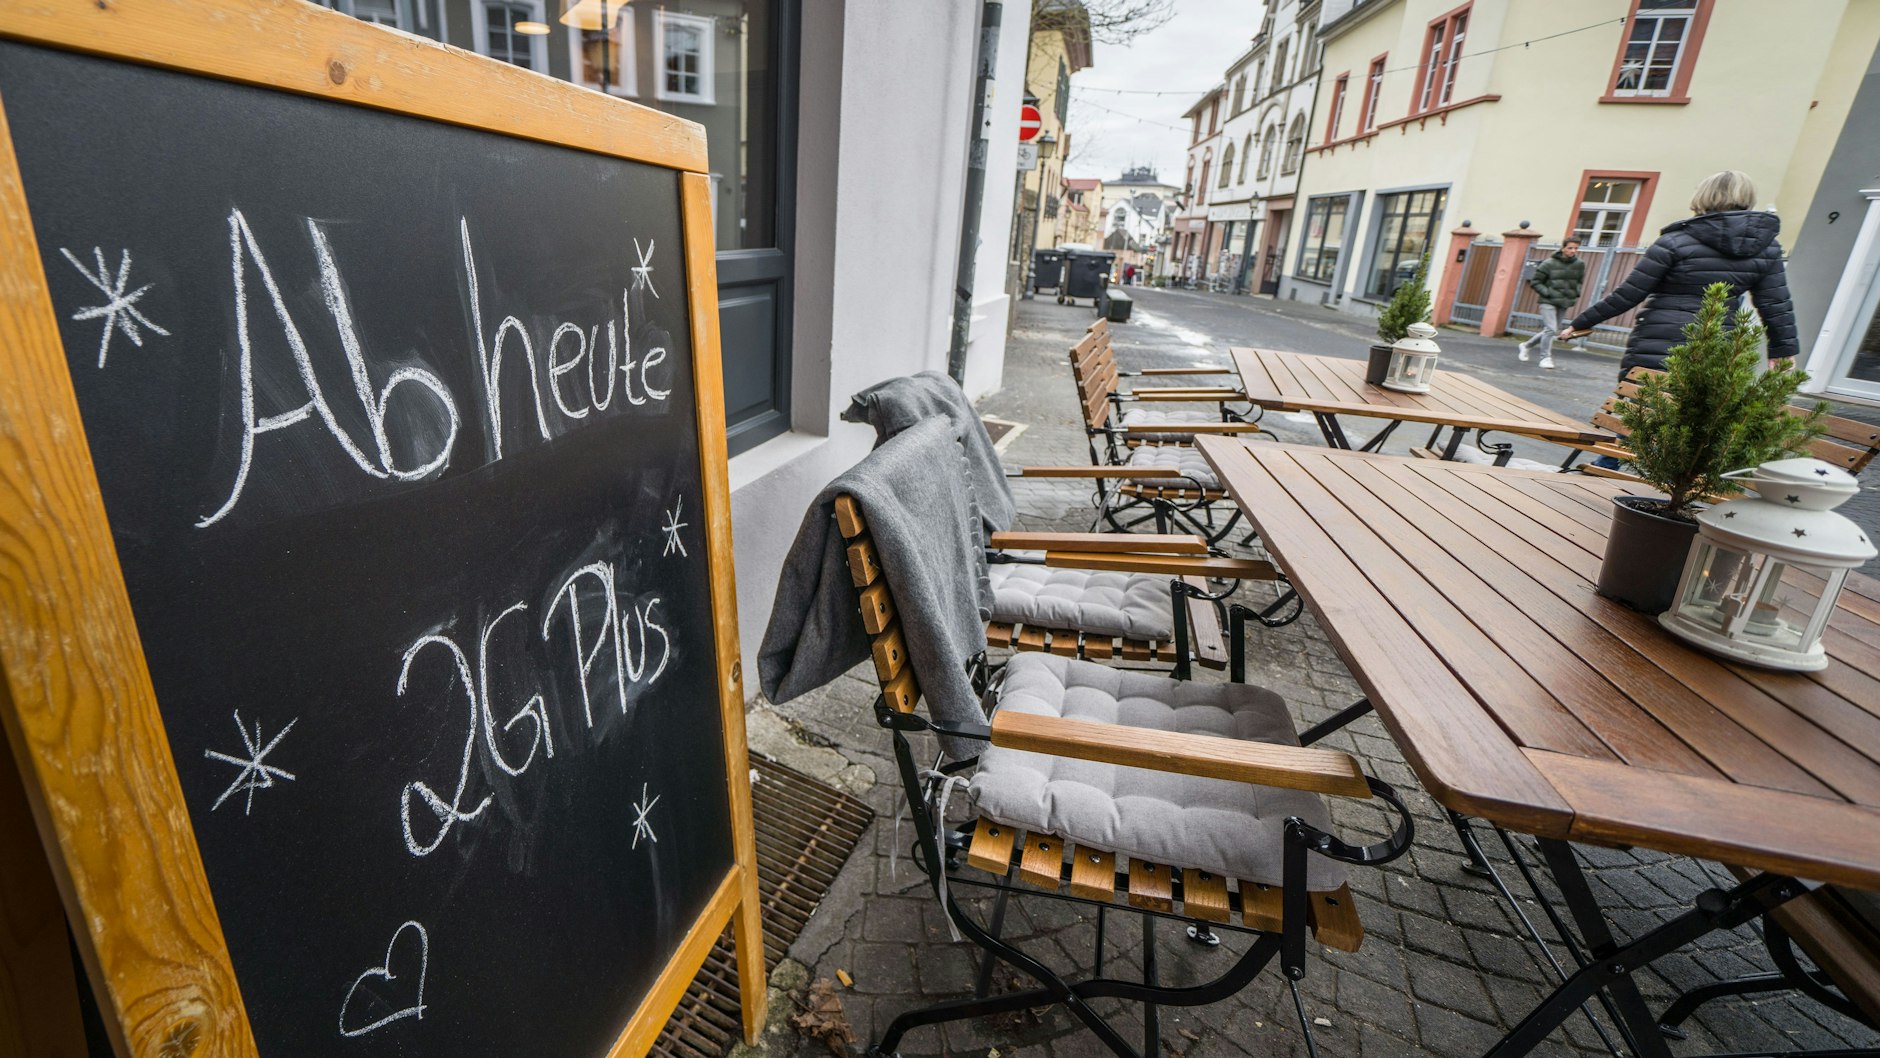 Ab heute
2G Plus
9